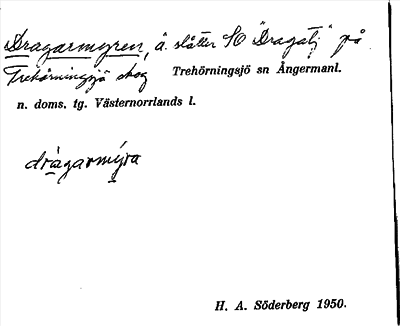 Dragarmyren, å. slåtter SO "Dragatj" på
Trehörningsjö skog Trehörningsjö sn Ångermanl.
n. doms. tg. Västernorrlands l.
dràgarmýra
H. A. Söderberg 1950.